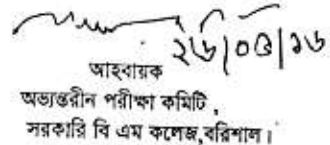 ২৬|০৪|১৬
আহবায়ক
অভ্যন্তরীন পরীক্ষা কমিটি ,
সরকারি বি এম কলেজ,বরিশাল।